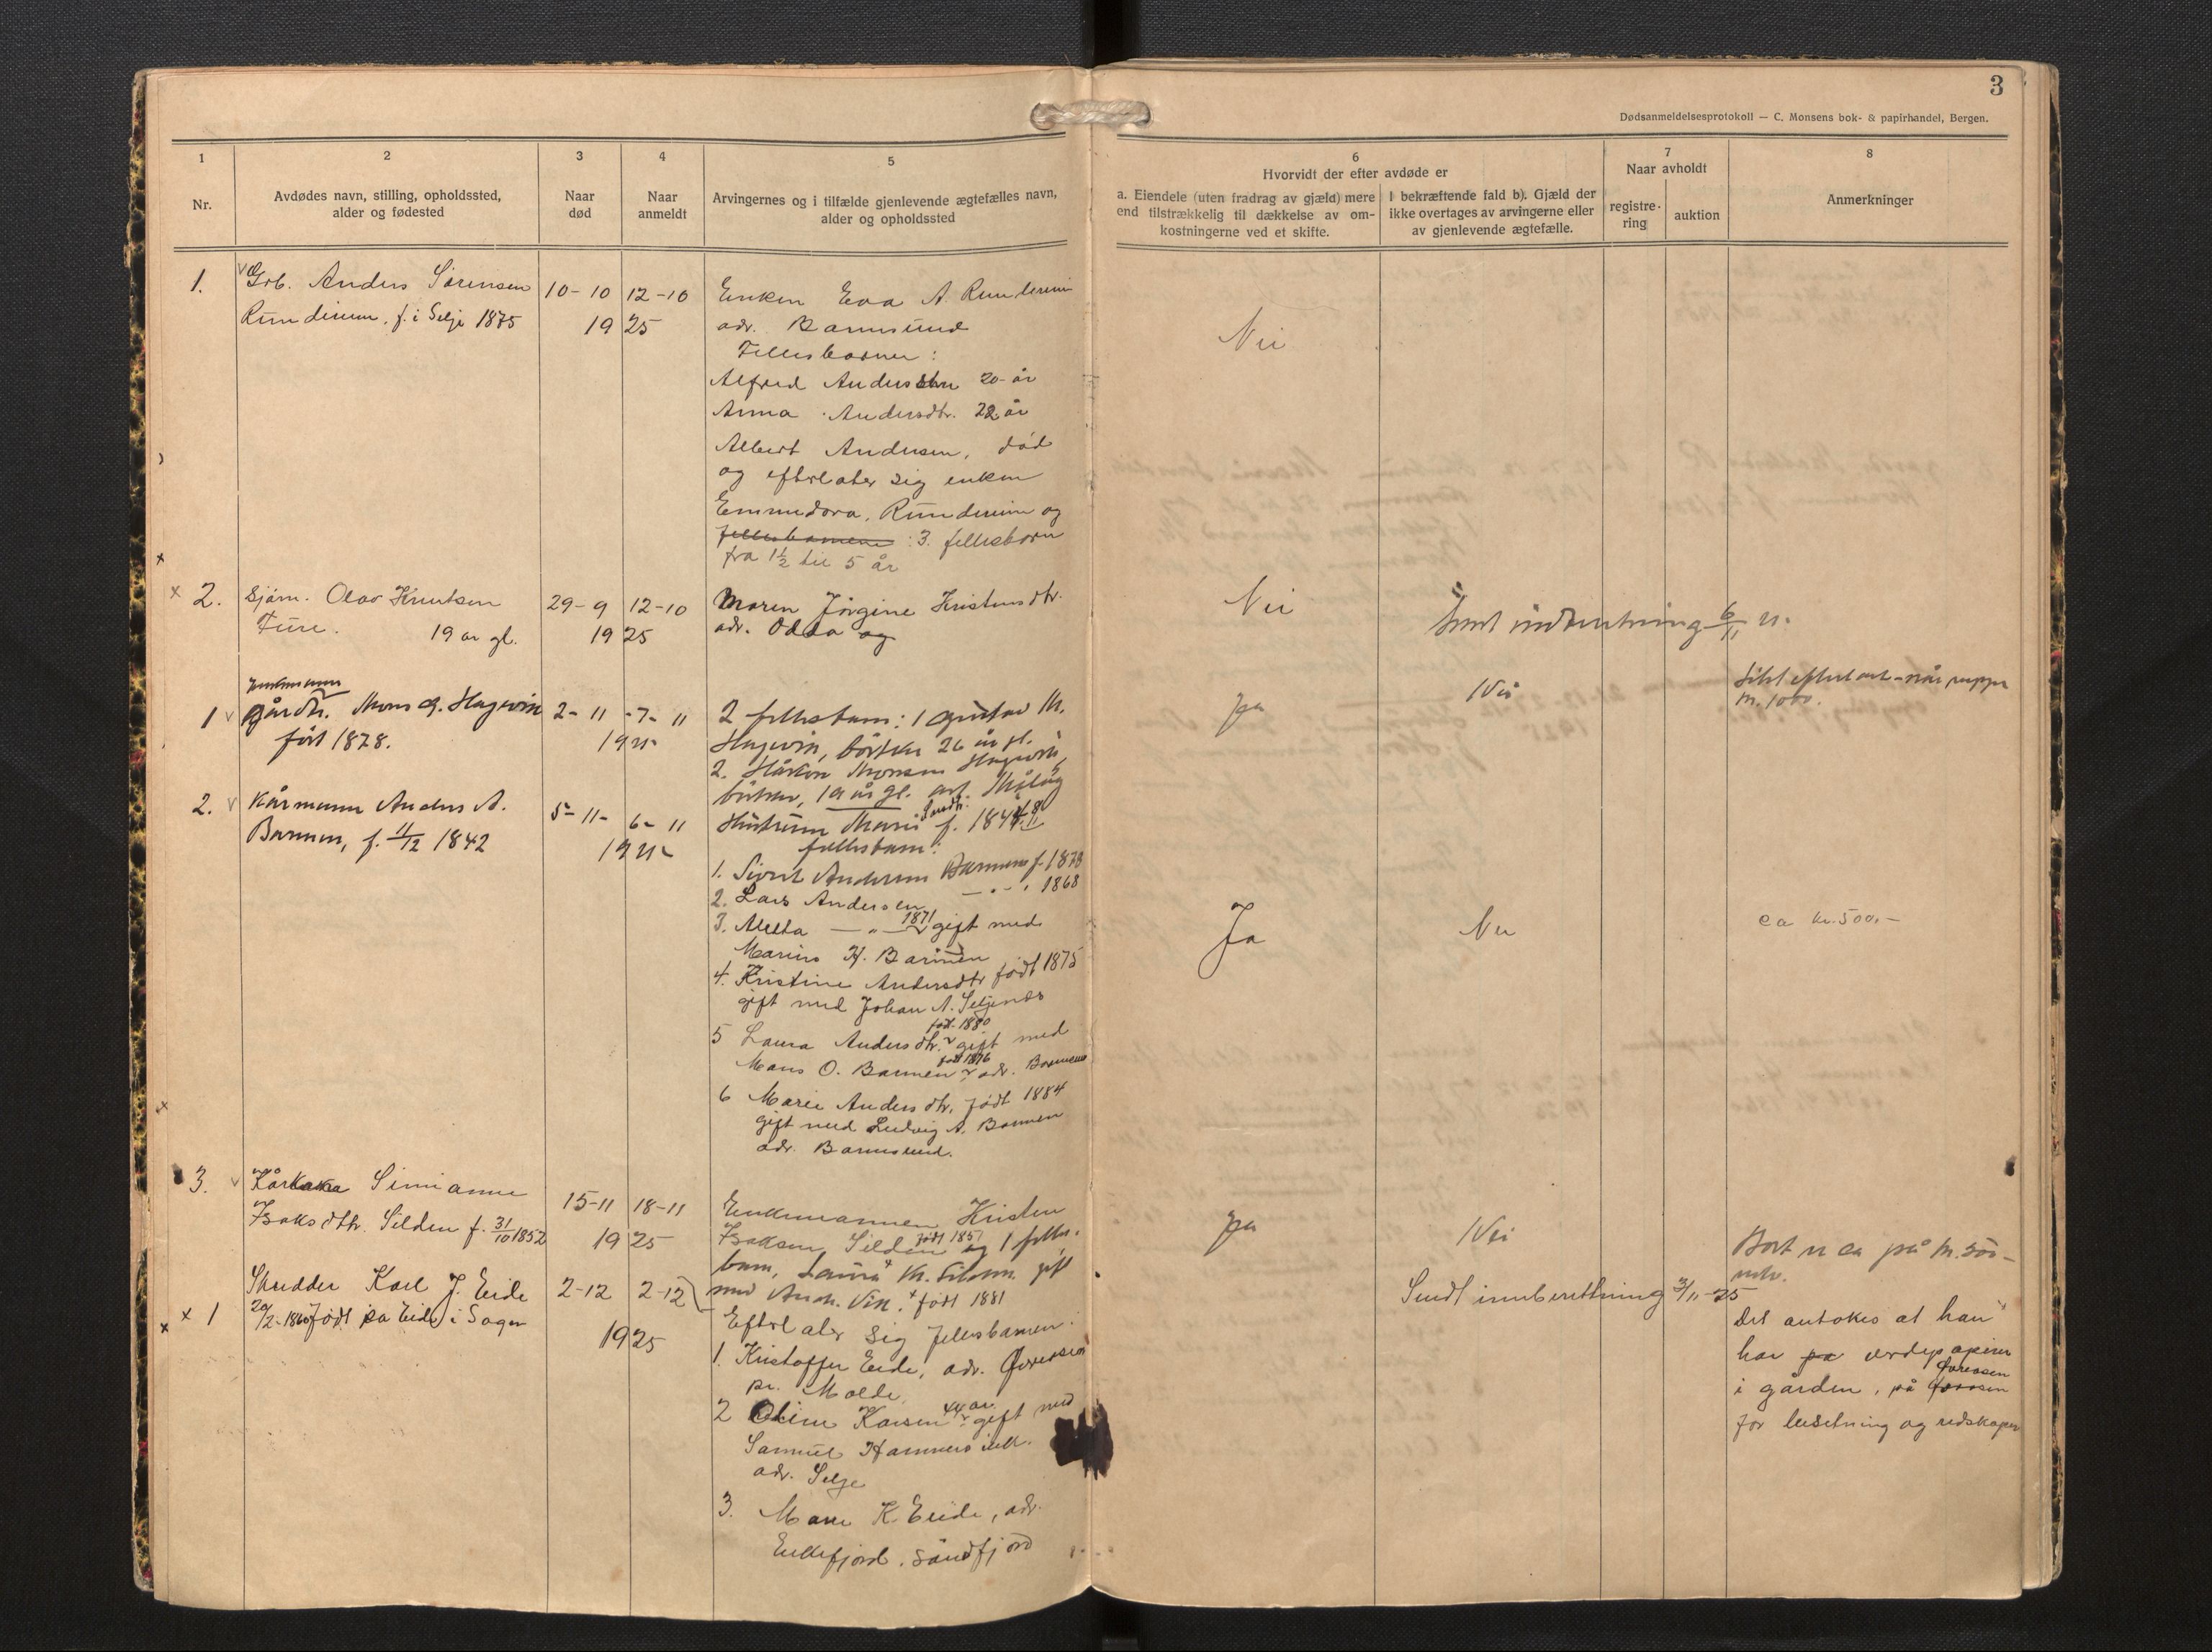 3
Dødsanmeldelsesprotokoll — C. Monsens bok- & papirhandel, Bergen.
1
Nr.
2
Avdødes navn, stilling, opholdssted,
alder og fødested
3
Naar
død
4
Naar
anmeldt
5
Arvingernes og i tilfælde gjenlevende ægtefælles navn,
alder og opholdssted
6
Hvorvidt der efter avdøde er
a. Eiendele (uten fradrag av gjæld) mere
end tilstrækkelig til dækkelse av om-
kostningerne ved et skifte.
I bekræftende fald b). Gjæld der
ikke overtages av arvingerne eller
av gjenlevende ægtefælle.
7
Naar avholdt
registre-
ring
auktion
8
Anmerkninger
1. Grb. Anders Sørensen
Rundereim, f. i Selje 1875
10-10 12-10
1925
Enken Eva A. Rundereim
adr. Barmsund
Fellesbarner:
Alfred Anderssen 20 år
Anna Andersdtr. 22 år
Albert Andersen, død
og efterlater sig enken
Emmedora. Rundereim og
fellesbarnene : 3. fellesborn
fra 1½ til 5 år
Nei
x 2. Sjøm. Olav Knutsen
Ture. 19 år gl.
29-9 12-10
1925
Maren Jörgine Kristensdtr.
adr. Odda og
Nei
Sendt indberetning 6/11 25
1 Enkemann
gårdbr. Mons A. Hagevik
født 1878.
2-11 -7-11
1925
2 fellesbarn: 1 Gustav M.
Hagevik, 26 år gl.
2. Håkon Monsen Hagevik,
19 år gl. adr. Måløy
Ja
Nei
kr. 1000.
2. Kårmann Anders A.
Barmen, f. 11/12 1842
5-11- 6-11
1925
Hustruen Marie f. 1844
fellesbarn:
1. Sivert Andersen Barmen f. 1873
2. Lars Andersen 1868
3. Aletta — " — 1871 gift med
Marius H. Barmen
4. Kristine Andersdtr født 1875
gift med Johan A. Seljenes
5 Laura Andersdtr. født 1880 gift med
Mons O. Barmen født 1876 adr. Barmen
6 Marie Andersdtr. født 1884
gift med Ludvig A. Barmen
adr. Barmsund.
Ja
Nei
ca kr. 500.-
3. Kårkona Simianne
Isaksdtr. Silden f. 31/10 1852
15-11 18-11
1925
Enkemannen Kristen
Isaksen Silden født 1857 og 1 felles-
barn, Laura Kr. Silden. gift
med Andr. Vik. + født 1881
Ja
Nei
Bort er ca på kr. 500-
x 1 Skredder Karl J. Eide
20/2-1860 født på Eide i Sogn
2-12 2-12
1925
Efterlater sig fellesbarnen.
1. Kristoffer Eide, adr.
pr. Molde.
2 Oline Karsen 44 år gift med
Samuel Hammersvik.
adr. Selje
3. Mari K. Eide, adr.
Eikefjord. Søndfjord
Sendt innberetning 3/11-25
Det antokes at han
har på verdipapirer
i gården, på
for besetning og redskaper